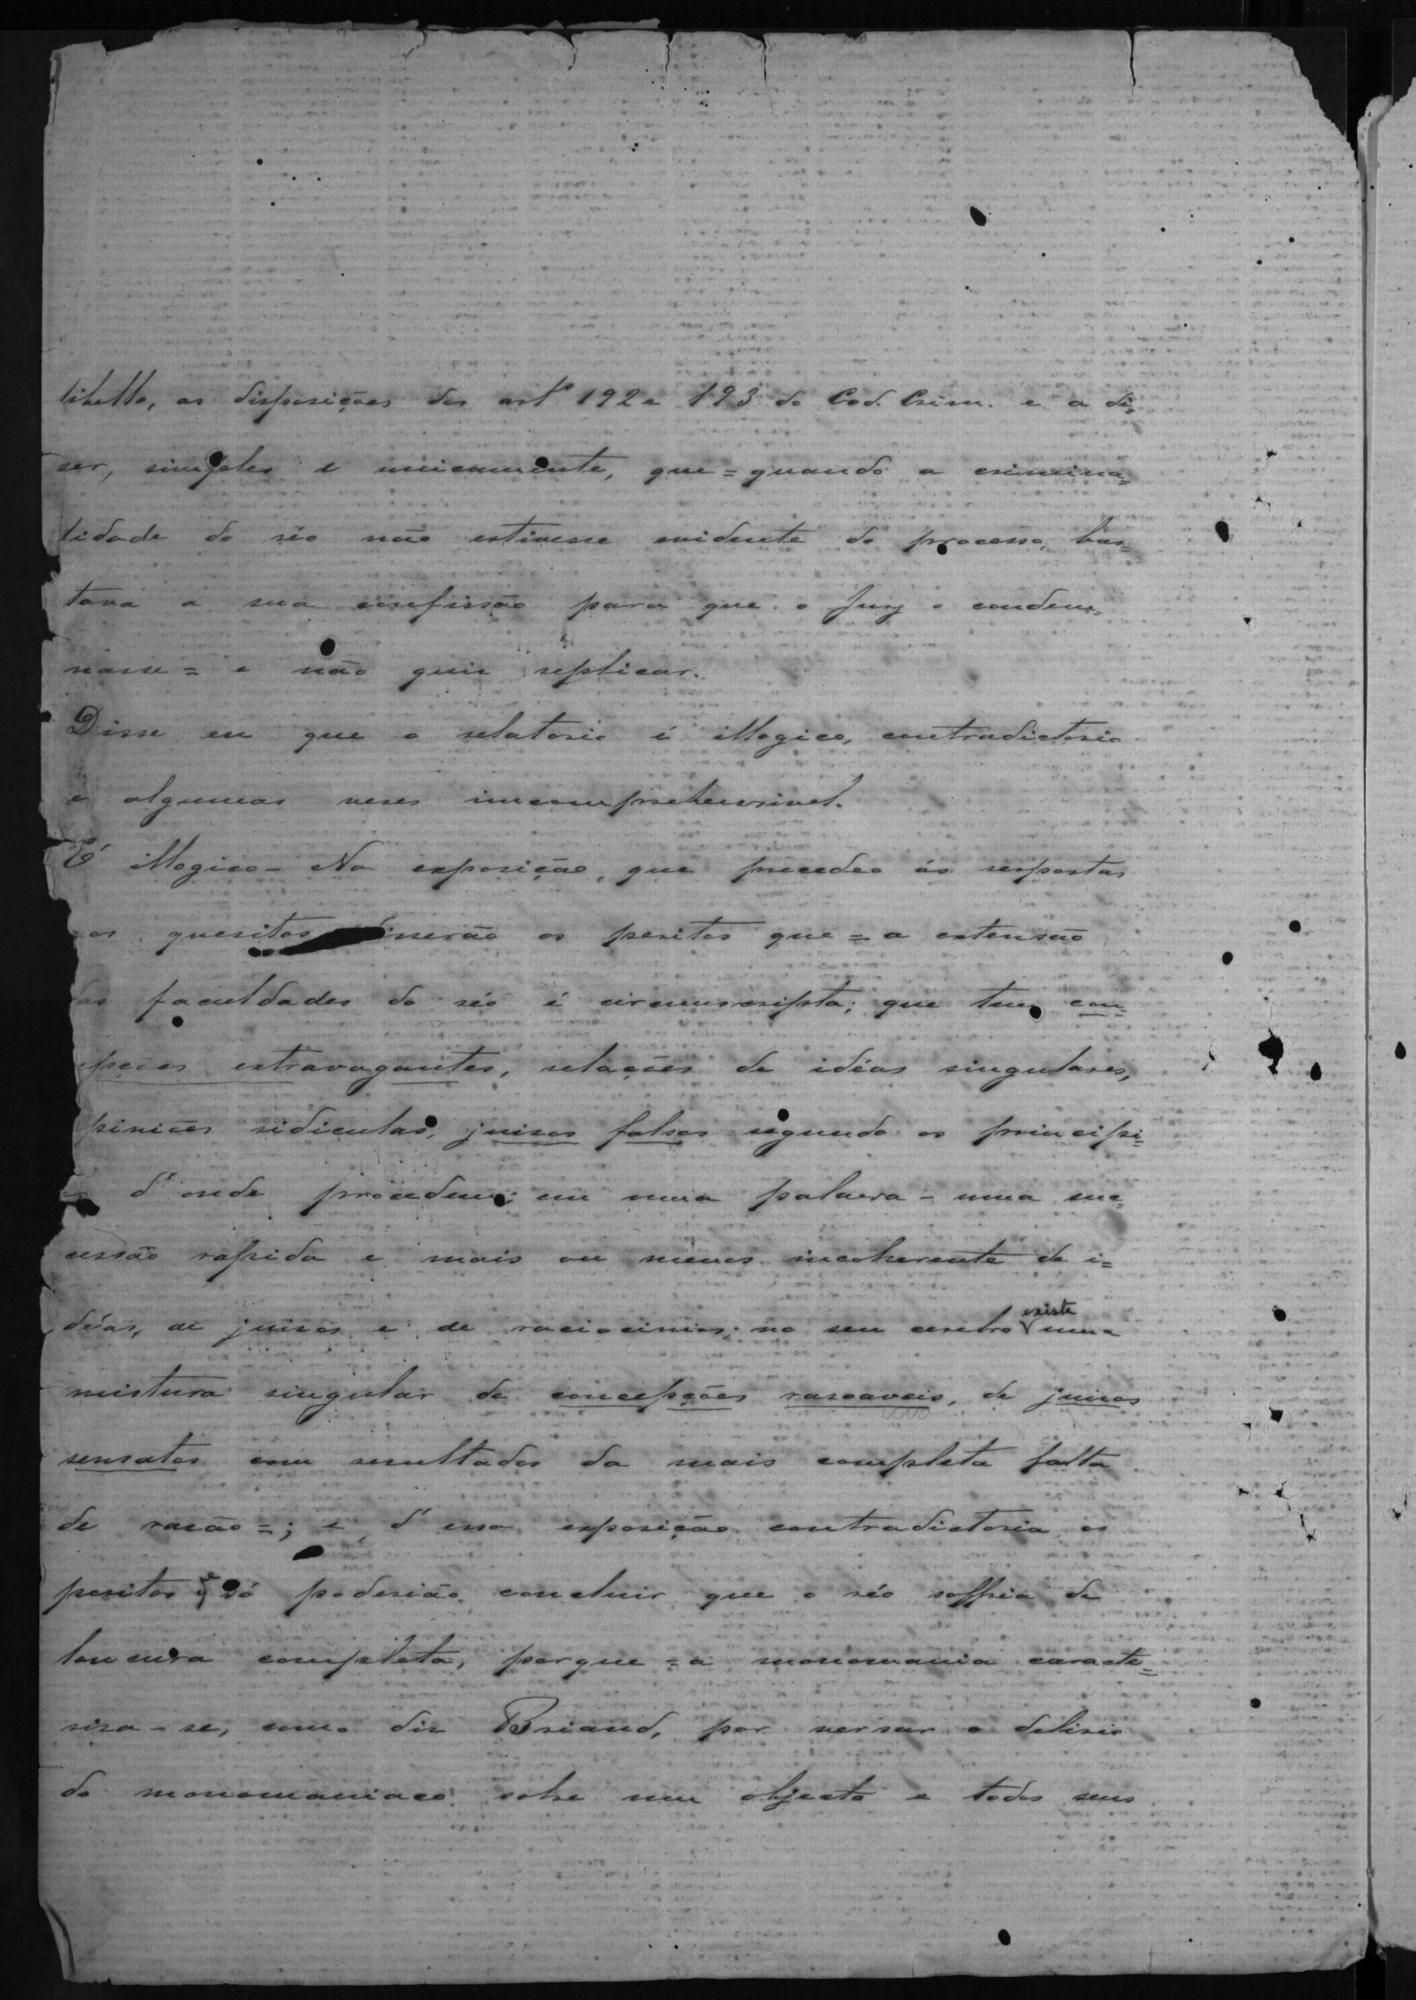 libello, as disposições dos artos 192 e 193 do Cod. Crim. e a di=
ser, simples e unicamente, que = quando a crimina=
lidade do réo não estivesse evidente do processo, bas=
tava a sua confissão para que o Jury o condem=
nasse = e não quis replicar.
Disse eu que o relatorio é illogico, contradictorio
e algumas veses imcomprehensivel.
É illogico - Na exposição, que precedeo ás respostas
aos quesitos, disserão os peritos que = a extensão
das faculdades do réo é circumscripta; que tem con=
cepções extravagantes, relações de idéas singulares,
opiniões ridiculas, juisos falsos segundo os principi=
os d'onde procedem; em uma palavra - uma suc=
cessão rapida e mais ou menos incoherente de i=
déas, de juisos e de raciocinios; no seu cerebro existe uma
mistura singular de concepções rasoaveis, de juisos
sensatos com resultados da mais completa falta
de rasão =; e d'essa exposição contradictoria os
peritos só poderião concluir que o réo soffria de
loucura completa, porque = a monomania caracte=
risa-se, como diz Briand, por versar o delirio
do monomaniaco sobre um objecto e todos seus